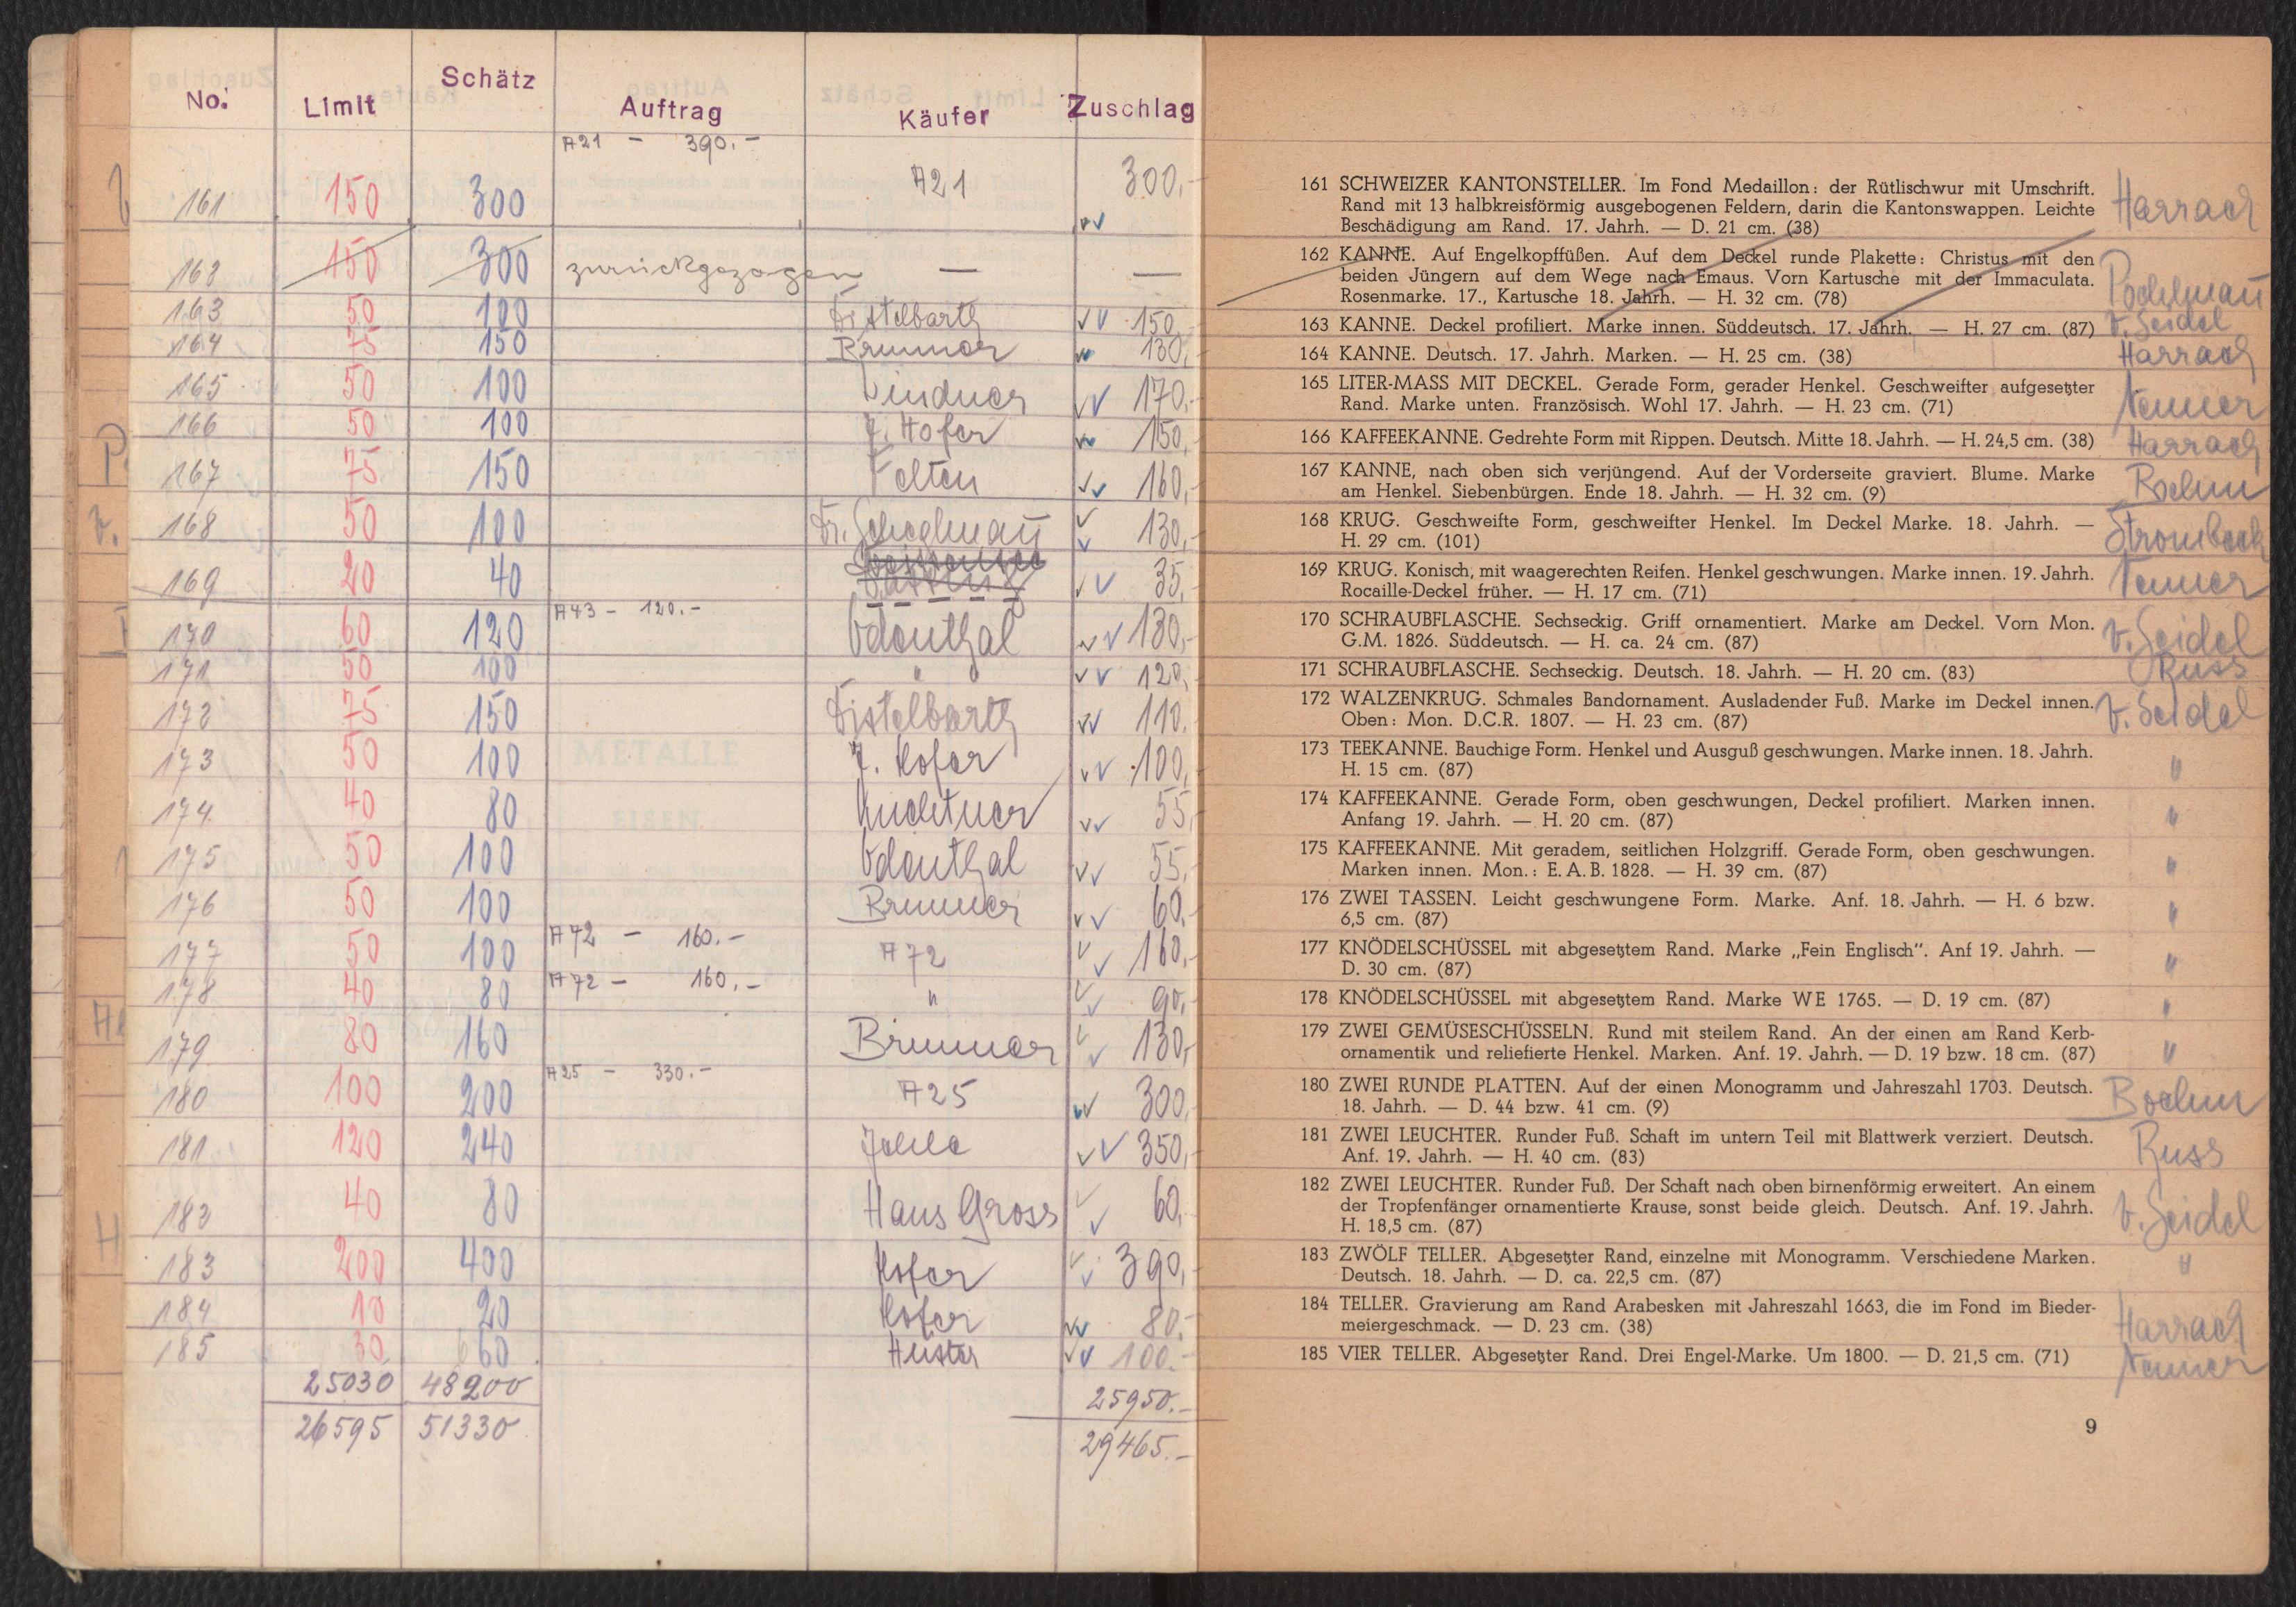 No. Limit Schätz Auftrag Käufer Zuschlag
A21 - 390.-
161 150 300 A21 300,-
162 150 300 zurückgezogen — —
163 50 100 Distelbarth 150,-
164 75 150 Brunner 130,-
165 50 100 Lindner 170,-
166 50 100 J. Hofer 150,-
167 75 150 Felten 160,-
168 50 100 130,-
169 20 40 35,-
A43 - 120.-
170 60 120 Odenthal 130,-
171 50 100 " " 120,-
172 75 150 Distelbarth 110.
173 50 100 J. Hofer 100,-
174 40 80 55,
175 50 100 Odenthal 55,-
176 50 100 Brunner 60,-
A72 - 160.-
177 50 100 A72 160,-
A72 - 160.-
178 40 80 " 90,-
179 80 160 Brunner 130,-
A25 - 330.-
180 100 200 A25 300,-
181 120 240 350,-
182 40 80 Hans Gross 60,-
183 200 400 Hofer 390,-
184 10 20 Hofer 80.-
185 30 60 100.-
25030 48200 25950.-
26595 51330 29465.-
161 SCHWEIZER KANTONSTELLER. Im Fond Medaillon: der Rütlischwur mit Umschrift.
Rand mit 13 halbkreisförmig ausgebogenen Feldern, darin die Kantonswappen. Leichte Harrach
Beschädigung am Rand. 17. Jahrh. — D. 21 cm. (38)
162 KANNE. Auf Engelkopffüßen. Auf dem Deckel runde Plakette: Christus mit den
beiden Jüngern auf dem Wege nach Emaus. Vorn Kartusche mit der Immaculata. Pochlmann
Rosenmarke. 17., Kartusche 18. Jahrh. — H. 32 cm. (78)
163 KANNE. Deckel profiliert. Marke innen. Süddeutsch. 17. Jahrh. — H. 27 cm. (87) v. Seidel
164 KANNE. Deutsch. 17. Jahrh. Marken. — H. 25 cm. (38) Harrach
165 LITER-MASS MIT DECKEL. Gerade Form, gerader Henkel. Geschweifter aufgesetzter
Rand. Marke unten. Französisch. Wohl 17. Jahrh. — H. 23 cm. (71)
166 KAFFEEKANNE. Gedrehte Form mit Rippen. Deutsch. Mitte 18. Jahrh. — H. 24,5 cm. (38) Harrach
167 KANNE, nach oben sich verjüngend. Auf der Vorderseite graviert. Blume. Marke
am Henkel. Siebenbürgen. Ende 18. Jahrh. — H. 32 cm. (9) Boehm
168 KRUG. Geschweifte Form, geschweifter Henkel. Im Deckel Marke. 18. Jahrh. —
H. 29 cm. (101) Strombeck
169 KRUG. Konisch, mit waagerechten Reifen. Henkel geschwungen. Marke innen. 19. Jahrh.
Rocaille-Deckel früher. — H. 17 cm. (71)
170 SCHRAUBFLASCHE. Sechseckig. Griff ornamentiert. Marke am Deckel. Vorn Mon.
G.M. 1826. Süddeutsch. — H. ca. 24 cm. (87) v. Seidel
171 SCHRAUBFLASCHE. Sechseckig. Deutsch. 18. Jahrh. — H. 20 cm. (83) Russ
172 WALZENKRUG. Schmales Bandornament. Ausladender Fuß. Marke im Deckel innen.
Oben: Mon. D.C.R. 1807. — H. 23 cm. (87) v. Seidel
173 TEEKANNE. Bauchige Form. Henkel und Ausguß geschwungen. Marke innen. 18. Jahrh.
H. 15 cm. (87) "
174 KAFFEEKANNE. Gerade Form, oben geschwungen, Deckel profiliert. Marken innen.
Anfang 19. Jahrh. — H. 20 cm. (87) "
175 KAFFEEKANNE. Mit geradem, seitlichen Holzgriff. Gerade Form, oben geschwungen.
Marken innen. Mon.: E. A. B. 1828. — H. 39 cm. (87) "
176 ZWEI TASSEN. Leicht geschwungene Form. Marke. Anf. 18. Jahrh. — H. 6 bzw.
6,5 cm. (87) "
177 KNÖDELSCHÜSSEL mit abgesetztem Rand. Marke „Fein Englisch". Anf 19. Jahrh. —
D. 30 cm. (87) "
178 KNÖDELSCHÜSSEL mit abgesetztem Rand. Marke WE 1765. — D. 19 cm. (87) "
179 ZWEI GEMÜSESCHÜSSELN. Rund mit steilem Rand. An der einen am Rand Kerb-
ornamentik und reliefierte Henkel. Marken. Anf. 19. Jahrh. — D. 19 bzw. 18 cm. (87) "
180 ZWEI RUNDE PLATTEN. Auf der einen Monogramm und Jahreszahl 1703. Deutsch.
18. Jahrh. — D. 44 bzw. 41 cm. (9) Boehm
181 ZWEI LEUCHTER. Runder Fuß. Schaft im untern Teil mit Blattwerk verziert. Deutsch.
Anf. 19. Jahrh. — H. 40 cm. (83) Russ
182 ZWEI LEUCHTER. Runder Fuß. Der Schaft nach oben birnenförmig erweitert. An einem
der Tropfenfänger ornamentierte Krause, sonst beide gleich. Deutsch. Anf. 19. Jahrh. v. Seidel
H. 18,5 cm. (87)
183 ZWÖLF TELLER. Abgesetzter Rand, einzelne mit Monogramm. Verschiedene Marken.
Deutsch. 18. Jahrh. — D. ca. 22,5 cm. (87) "
184 TELLER. Gravierung am Rand Arabesken mit Jahreszahl 1663, die im Fond im Bieder-
meiergeschmack. — D. 23 cm. (38) Harrach
185 VIER TELLER. Abgesetzter Rand. Drei Engel-Marke. Um 1800. — D. 21,5 cm. (71)
9